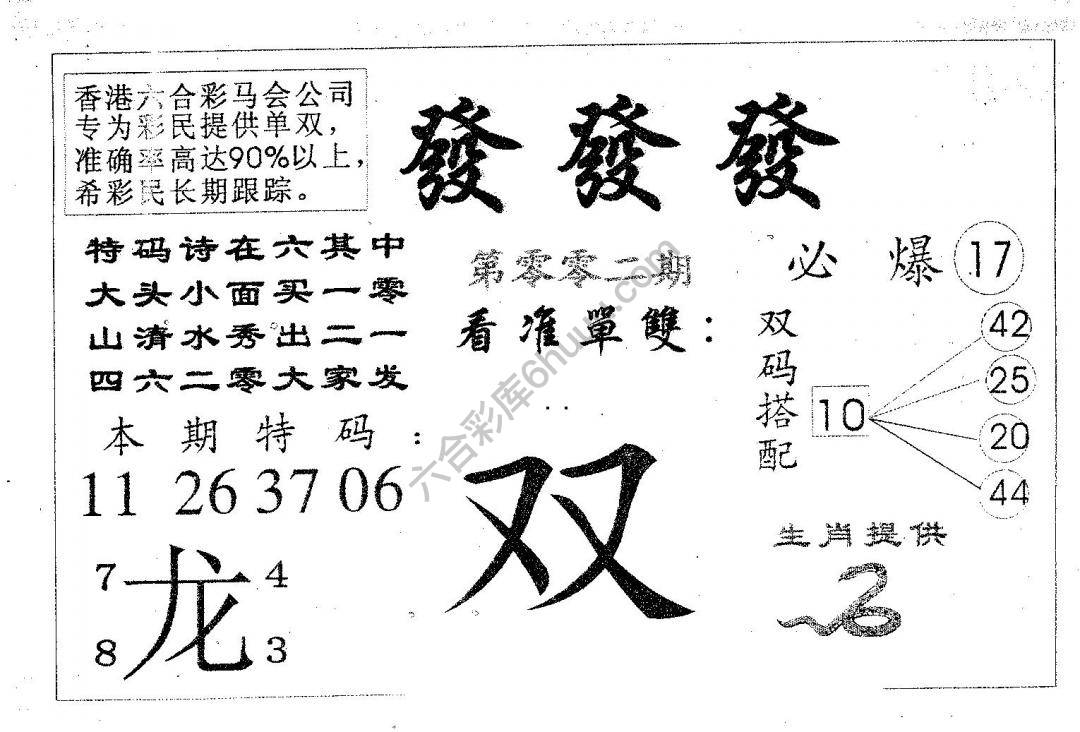 香港六合彩马会公司
专为彩民提供单双，
准确率高达90%以上，
希彩民长期跟踪。
發 發 發
特码诗在六其中
大头小面买一零
山清水秀出二一
四六二零大家发
第零零二期
看准單雙：
必爆 17
双码搭配
10
42
25
20
44
本期特码：
11 26 37 06
双
生肖提供
7 4
龙
8 3
六合彩库6huu.com